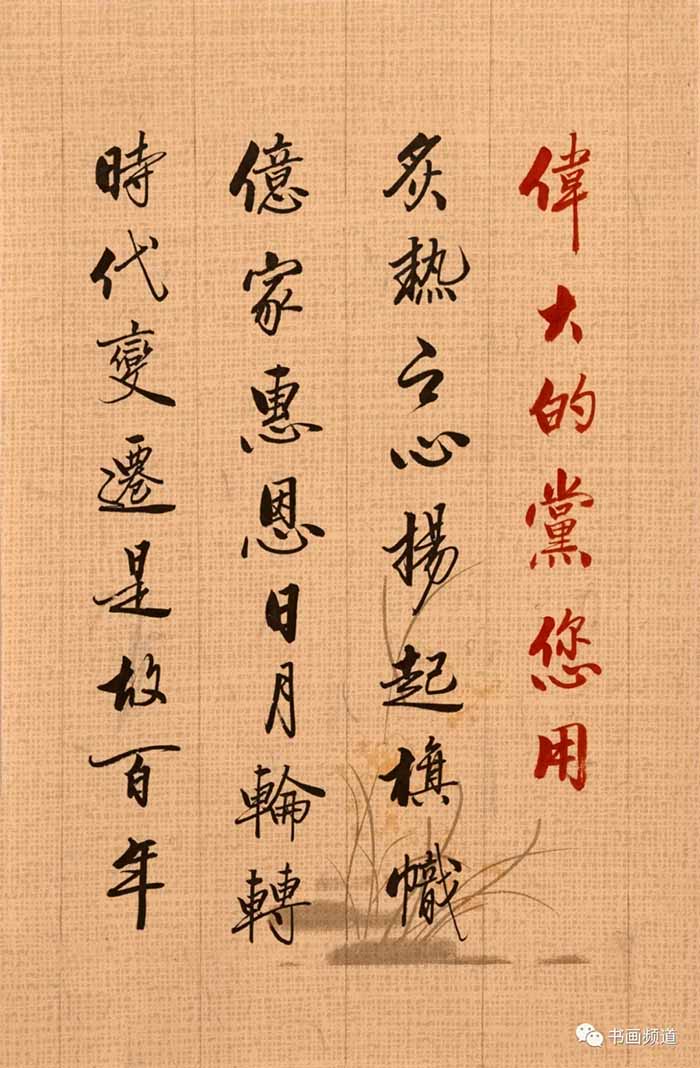 偉大的黨您用
炙熱之心揚起旗幟
億家惠恩日月輪轉
時代變遷是故百年
书画频道